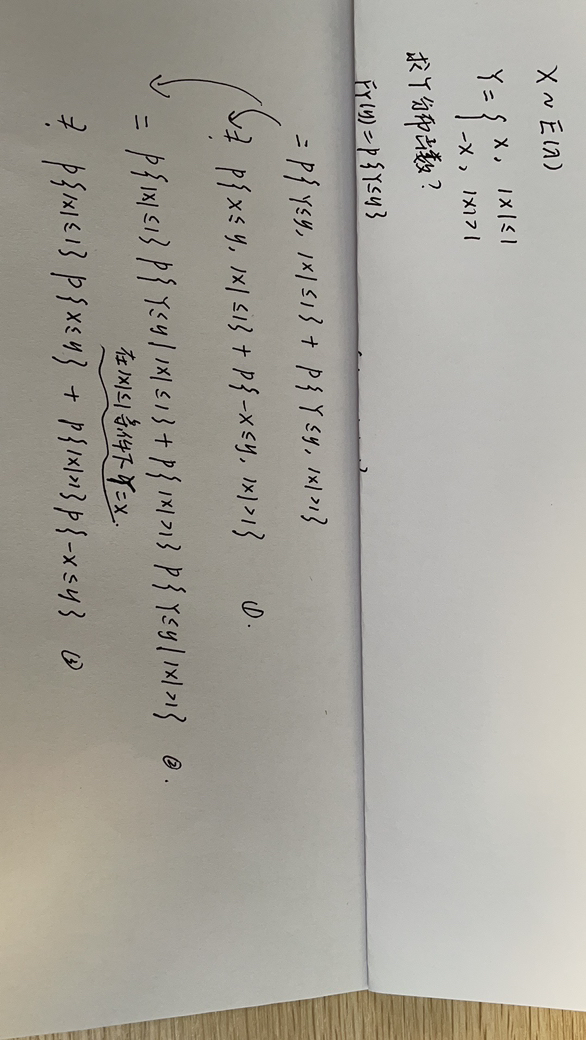 X ~ E(λ)
Y = { X, |X|≤1
-X, |X|>1
求Y分布函数?
FY(y) = P{Y≤y}
= P{Y≤y, |X|≤1} + P{Y≤y, |X|>1}
≠? P{X≤y, |X|≤1} + P{-X≤y, |X|>1} ①.
= P{|X|≤1} P{Y≤y | |X|≤1} + P{|X|>1} P{Y≤y | |X|>1} ②.
在|X|≤1条件下 Y=X.
≠? P{|X|≤1} P{X≤y} + P{|X|>1} P{-X≤y} ③